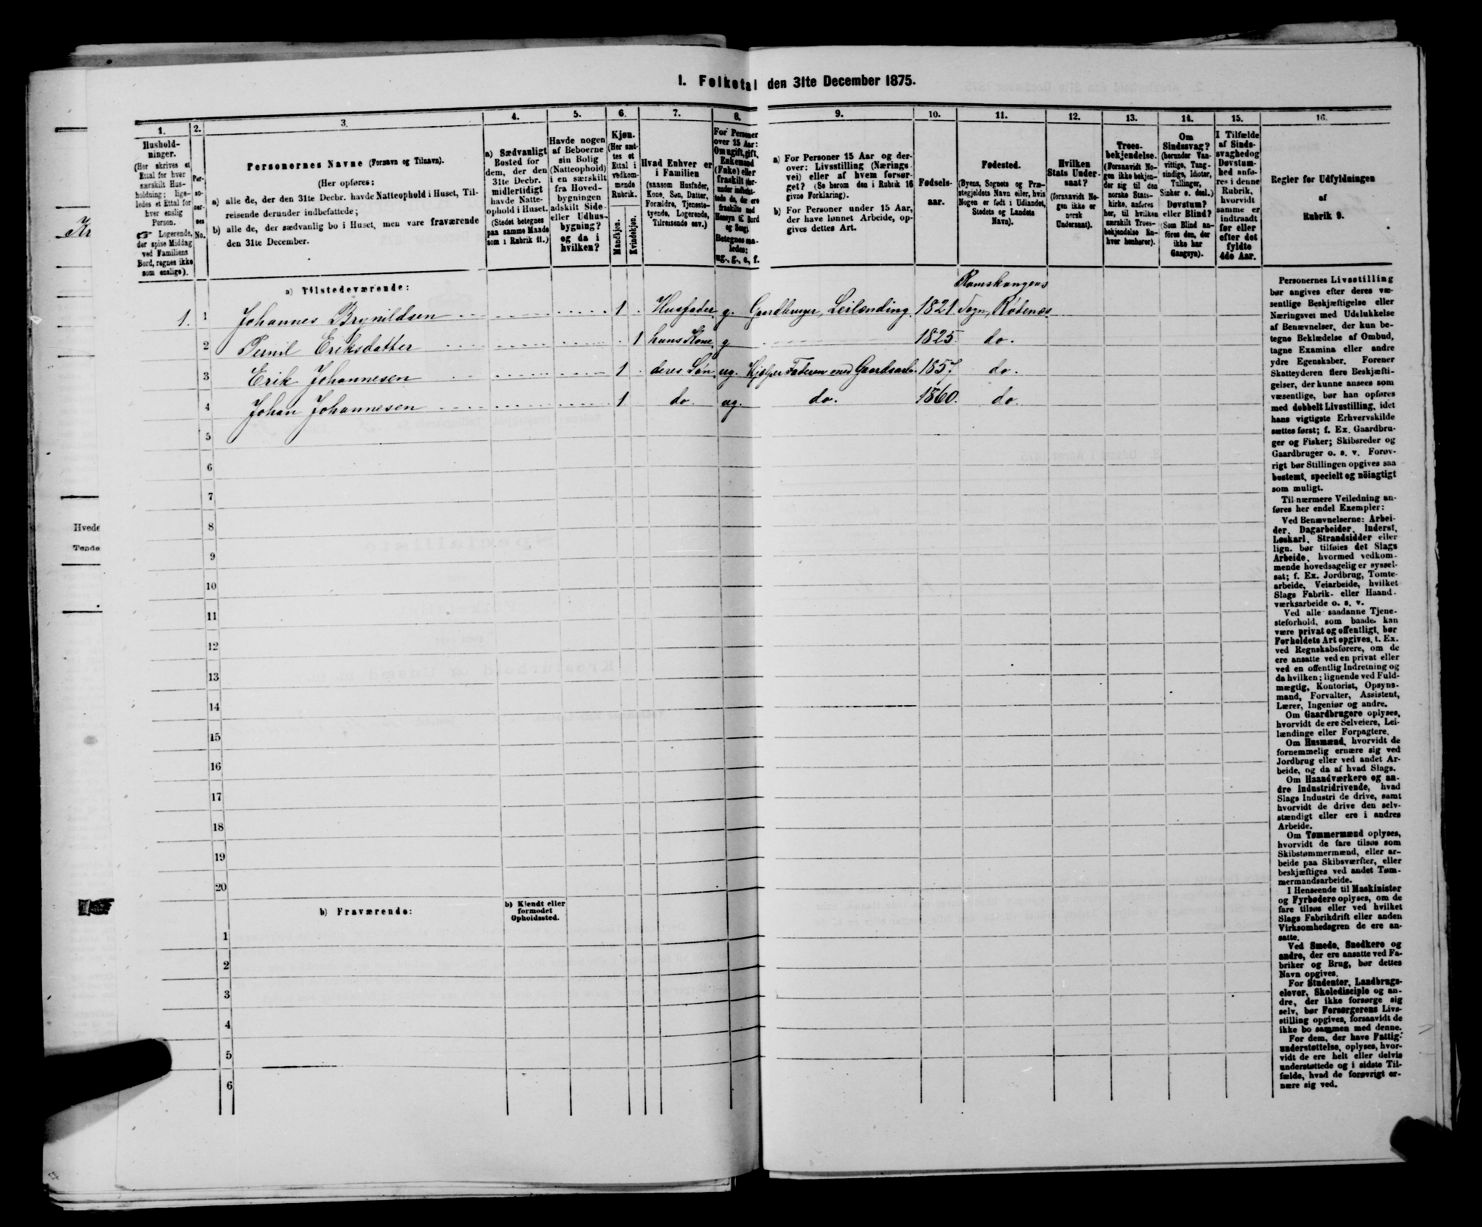 I. Folketal den 31te December 1875.
1. 2. 3. 4. 5. 6. 7. 8. 9. 10. 11. 12. 13. 14. 15. 16.
Hushold-
ninger.
(Her skrives et
Ettal for hver
særskilt Hus-
holdning; lige-
ledes et Ettal for
hver enslig
Person.
☞ Logerende,
der spise Middag
ved Familiens
Bord, regnes ikke
som enslige).
Personernes Navne (Fornavn og Tilnavn).
(Her opføres:
a) alle de, der den 31te Decbr. havde Natteophold i Huset, Til-
reisende derunder indbefattede;
b) alle de, der sædvanlig bo i Huset, men vare fraværende
den 31te December.
a) Sædvanligt
Bosted for
dem, der den
31te Decbr.
midlertidigt
havde Natte-
ophold i Huset.
(Stedet betegnes
paa samme Maade
som i Rubrik 11.)
Havde nogen
af Beboerne
sin Bolig
(Natteophold)
i en særskilt
fra Hoved-
bygningen
adskilt Side-
eller Udhus-
bygning?
og da i
hvilken?
Kjøn.
(Her sæt-
tes et
Ettal i
vedkom-
mende
Rubrik.
Mandkjøn.
Kvindekjøn.
Hvad Enhver er
i Familien
(saasom Husfader,
Kone, Søn, Datter,
Forældre, Tjeneste-
tyende, Logerende,
Tilreisende osv.)
For Personer
over 15 Aar:
Om ugift, gift,
Enkemand
(Enke) eller
fraskilt
ug., g., e., f.
a) For Personer 15 Aar og der-
over: Livsstilling (Nærings-
vei) eller af hvem forsør-
get? (Se herom den i Rubrik 16
givne Forklaring).
b) For Personer under 15 Aar,
der have lønnet Arbeide, op-
gives dettes Art.
Fødsels-
aar.
Fødested.
(Byens, Sognets og Præ-
stegjeldets Navn eller, hvis
Nogen er født i Udlandet,
Stedets og Landets
Navn).
Hvilken
Stats Under-
saat?
(forsaavidt No-
gen ikke er
norsk
Undersaat).
Troes-
bekjendelse.
(Forsaavidt No-
gen ikke bekjen-
der sig til den
norske Stats-
kirke, anføres
her, til hvilken
særskilt Troes-
bekjendelse En-
hver henhører).
Om
Sindssvag?
(herunder Van-
vittige, Tung-
sindige, Idioter,
Tullinger,
Sinker o. desl.)
Døvstum?
eller Blind?
(Som Blind an-
føres den, der
ikke har
Gangsyn).
I Tilfælde
af Sinds-
svaghed og
Døvstum-
hed anfø-
res i denne
Rubrik,
hvorvidt
samme er
indtraadt
før eller
efter det
fyldte
4de Aar.
Regler for Udfyldningen
af
Rubrik 9.
a) Tilstedeværende:
Ramskougens
1. 1 Johannes Brynildsen 1 Husfader g. Gaardbruger, Leilænding 1821 Sogn, Rødenæs
2 Pernil Eriksdatter 1 hans Kone g 1825 do.
3 Erik Johannesen 1 deres Søn ug. Hjælper Faderen med Gaardsarb. 1857 do.
4 Johan Johannesen 1 do ug. do. 1860. do
5
6
7
8
9
10
11
12
13
14
15
16
17
18
19
20
b) Fraværende:
b) Kjendt eller
formodet
Opholdssted.
1
2
3
4
5
6
Kr
Hvede
Tønde
Personernes Livsstilling
bør angives efter deres væ-
sentlige Beskjæftigelse eller
Næringsvei med Udelukkelse
af Benævnelser, der kun be-
tegne Beklædelse af Ombud,
tagne Examina eller andre
ydre Egenskaber. Forener
Skatteyderen flere Beskjæfti-
gelser, der kunne ansees som
væsentlige, bør han opføres
med dobbelt Livsstilling, idet
hans vigtigste Erhvervskilde
sættes først; f. Ex. Gaardbru-
ger og Fisker; Skibsreder og
Gaardbruger o. s. v. Forøv-
rigt bør Stillingen opgives saa
bestemt, specielt og nöiagtigt
som muligt.
Til nærmere Veiledning an-
føres her endel Exempler:
Ved Benævnelserne: Arbei-
der, Dagarbeider, Inderst,
Løskarl, Strandsidder eller
lign. bør tilføies det Slags
Arbeide, hvormed vedkom-
mende hovedsagelig er syssel-
sat; f. Ex. Jordbrug, Tomte-
arbeide, Veiarbeide, hvilket
Slags Fabrik- eller Haand-
værksarbeide o. s. v.
Ved alle saadanne Tjene-
steforhold, som baade kan
være privat og offentligt, bør
Forholdets Art opgives, f. Ex.
ved Regnskabsførere, om de
ere ansatte ved en privat eller
ved en offentlig Indretning og
da hvilken; lignende ved Fuld-
mægtig, Kontorist, Opsyns-
mand, Forvalter, Assistent,
Lærer, Ingeniør og andre.
Om Gaardbrugere oplyses,
hvorvidt de ere Selveiere, Lei-
lændinge eller Forpagtere.
Om Husmænd, hvorvidt de
fornemmelig ernære sig ved
Jordbrug eller ved andet Ar-
beide, og da af hvad Slags.
Om Haandværkere og an-
dre Industridrivende, hvad
Slags Industri de drive, samt
hvorvidt de drive den selv-
stændigt eller ere i andres
Arbeide.
Om Tømmermænd oplyses,
hvorvidt de fare tilsøs som
Skibstømmermænd, eller ar-
beide paa Skibsværfter, eller
beskjæftiges ved andet Tøm-
mermandsarbeide.
I Henseende til Maskinister
og Fyrbødere oplyses, om de
fare tilsøs eller ved hvilket
Slags Fabrikdrift eller anden
Virksomhedsgren de ere an-
satte.
Ved Smede, Snedkere og
andre, der ere ansatte ved Fa-
briker og Brug, bør dettes
Navn opgives.
For Studenter, Landbrugs-
elever, Skoledisciple og an-
dre, der ikke forsørge sig
selv, bør Forsørgerens Livs-
stilling opgives, forsaavidt de
ikke bo sammen med denne.
For dem, der have Fattig-
understøttelse, oplyses, hvor-
vidt de ere helt eller delvis
understøttede og i sidste Til-
fælde, hvad de forøvrigt er-
nære sig ved.